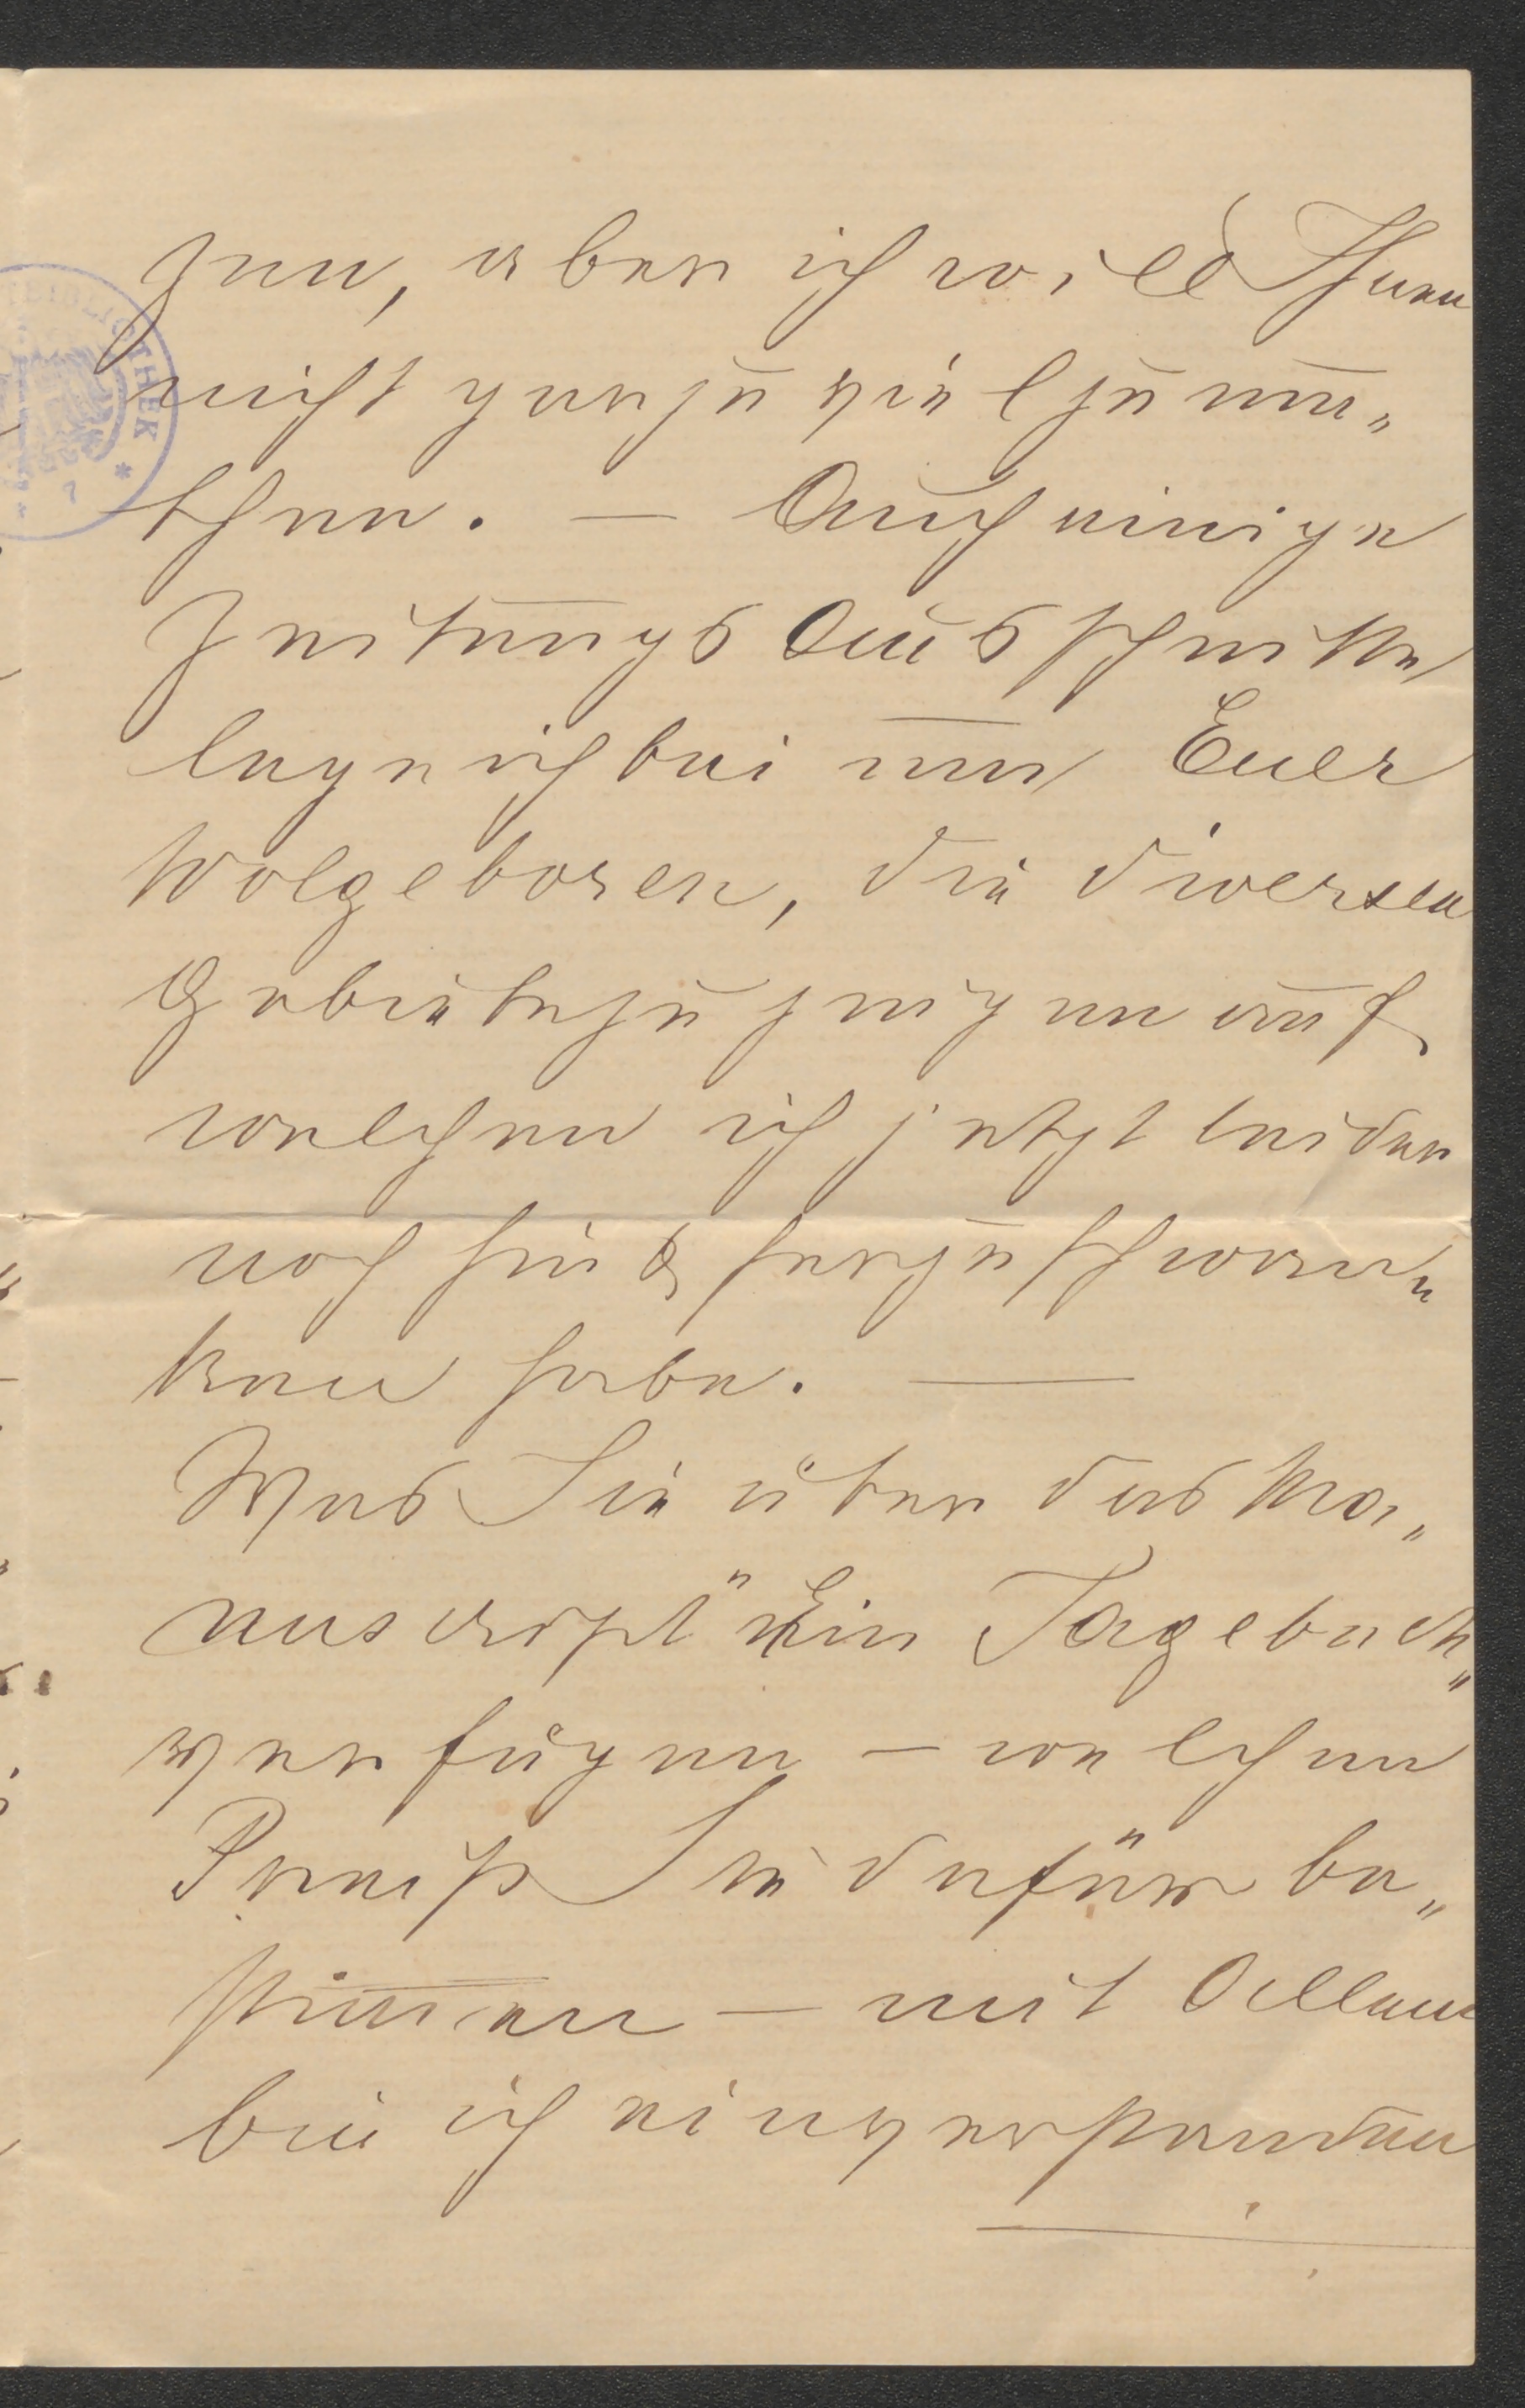 zen, aber ich will Ihnen
nicht gar zu viel zumu„
then. — Auch einige
Zeitungs Ausschnitte
lege ich bei um Euer
Wolgeboren, die diversen
Gebiete zu zeigen auf
welchen ich jetzt leider
noch hin & her zu schwan„
ken habe. —
Was Sie über das Ma„
nuscript "Ein Tagebuch"
verfügen — welchen
Preiß Sie dafür be„
stimmen — mit Allem
bin ich einverstanden
BIBLIOTHEK *